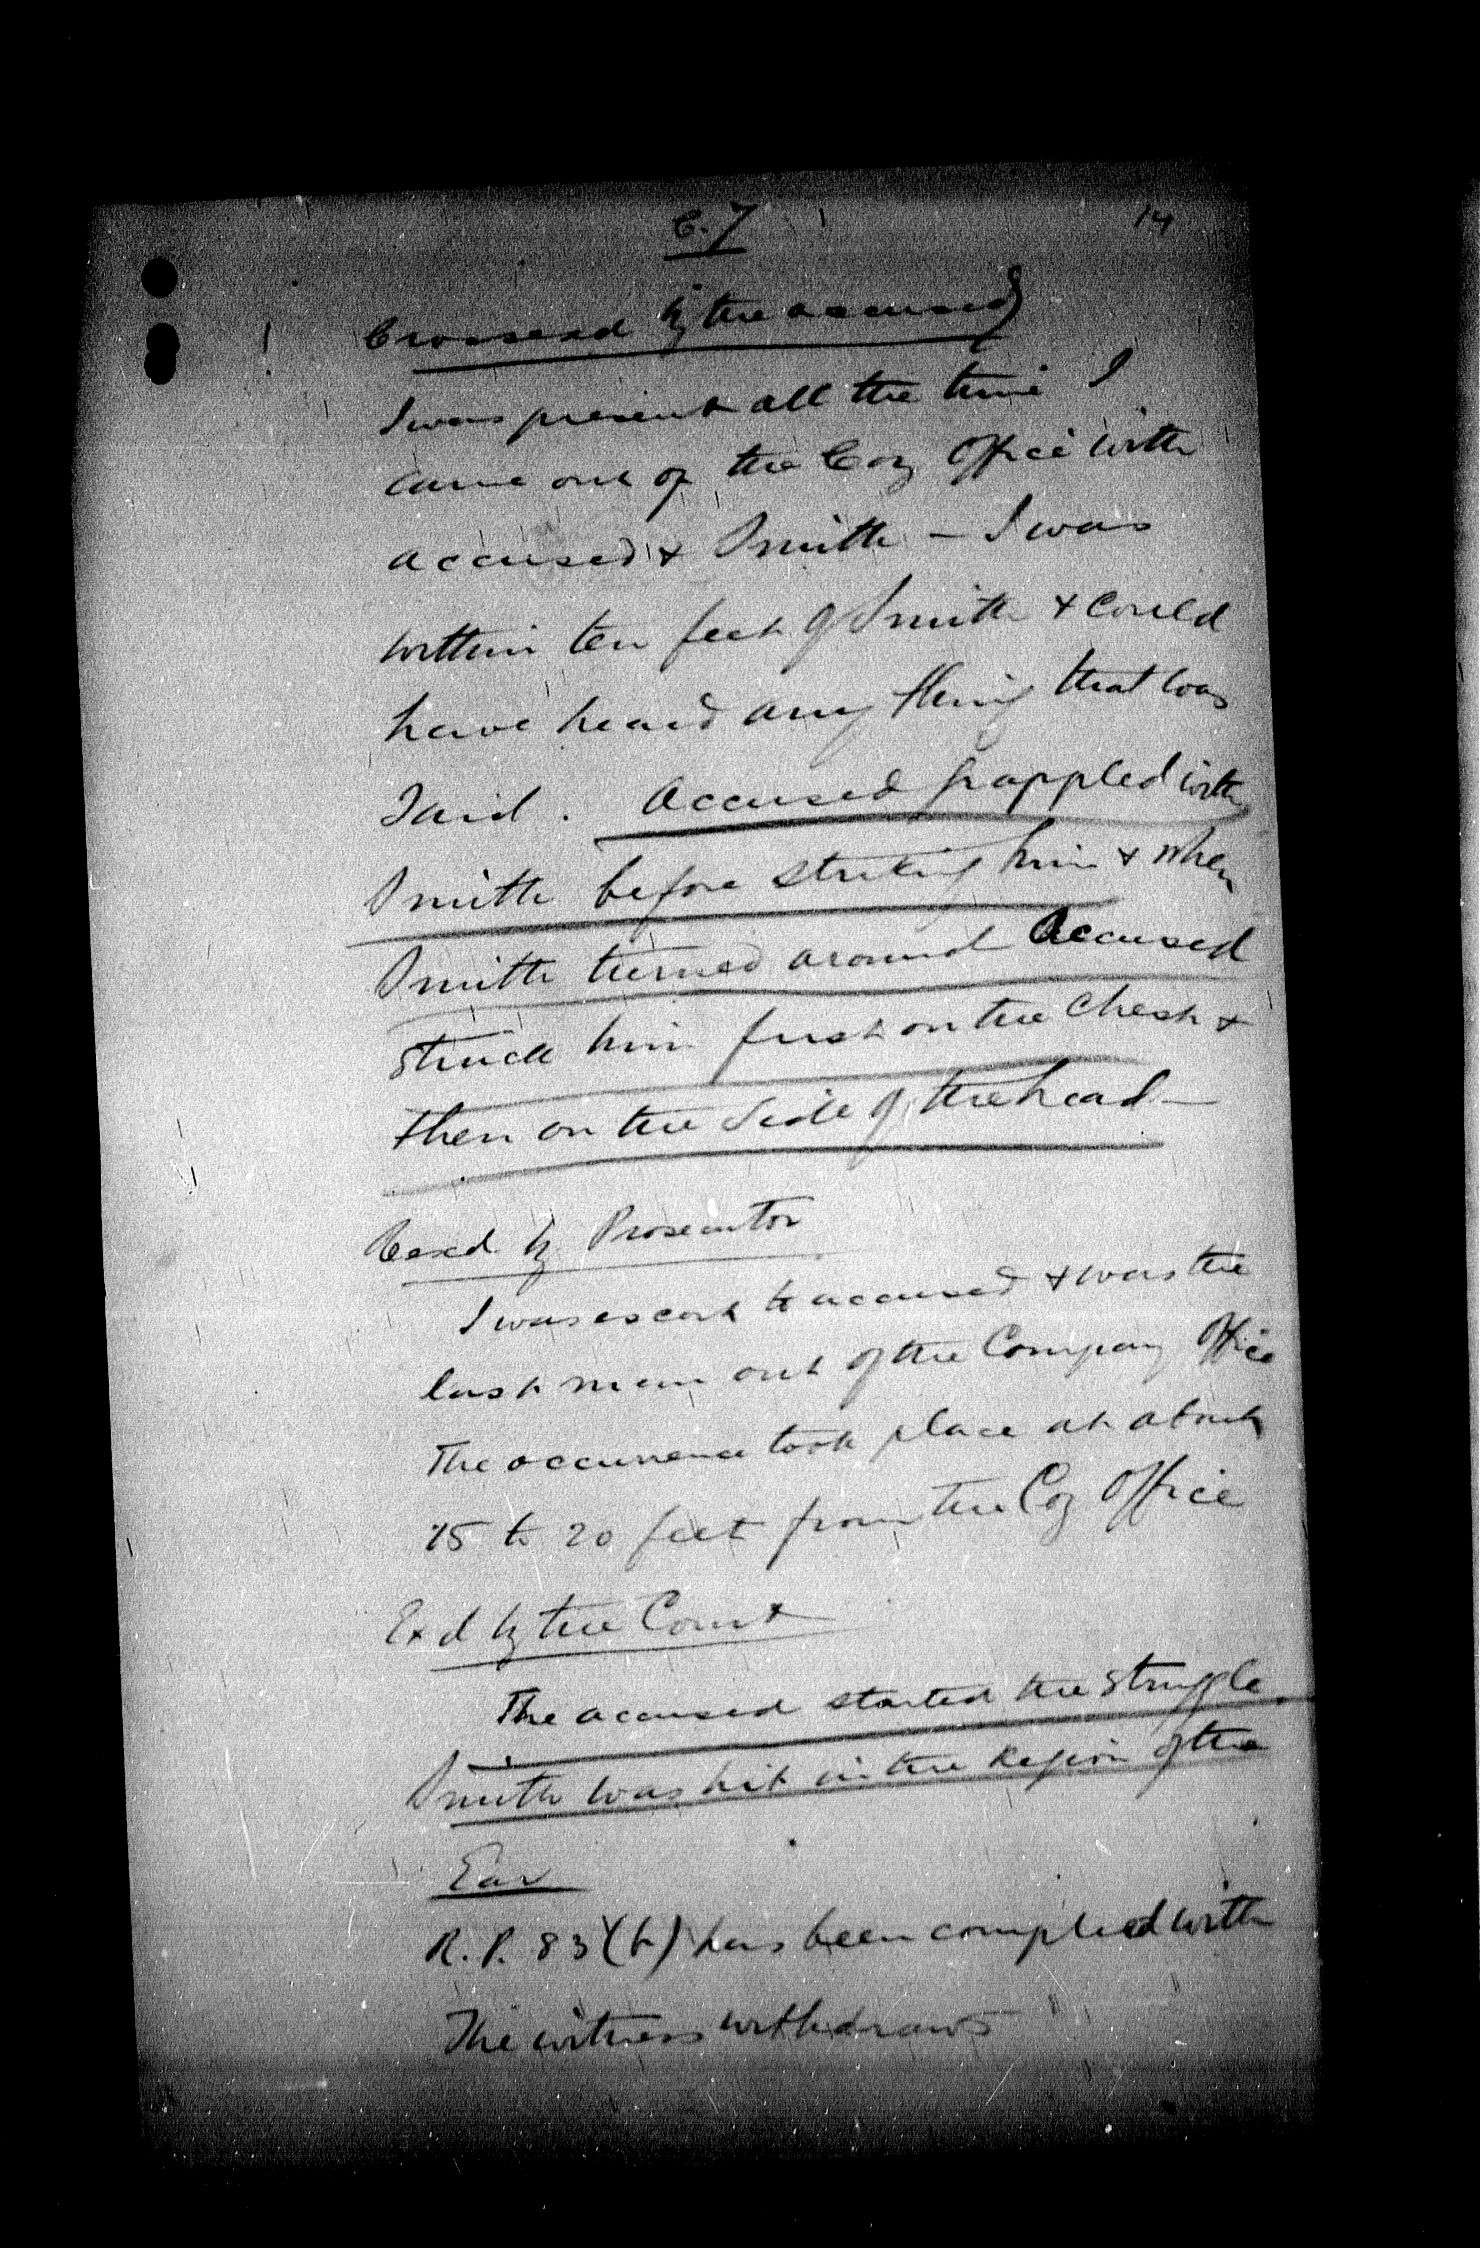 C. 7
14
Crossexd by the accused
I was present all the time I
came out of the Coy Office with
accused & Smith – I was
within ten feet of Smith & could
have heard any thing that was
Said. Accused grappled with
Smith before striking him & when
Smith turned around Accused
struck him first on the chest &
then on the side of the head –
Rexd by Prosecutor
I was escort to accused & was the
last man out of the Company Office
The occurrence took place at about
15 to 20 feet from the Coy Office
Exd by the Court
The accused started the struggle
Smith was hit in the Region of the
Ear
R.P. 83 (b) has been complied with
The witness withdraws